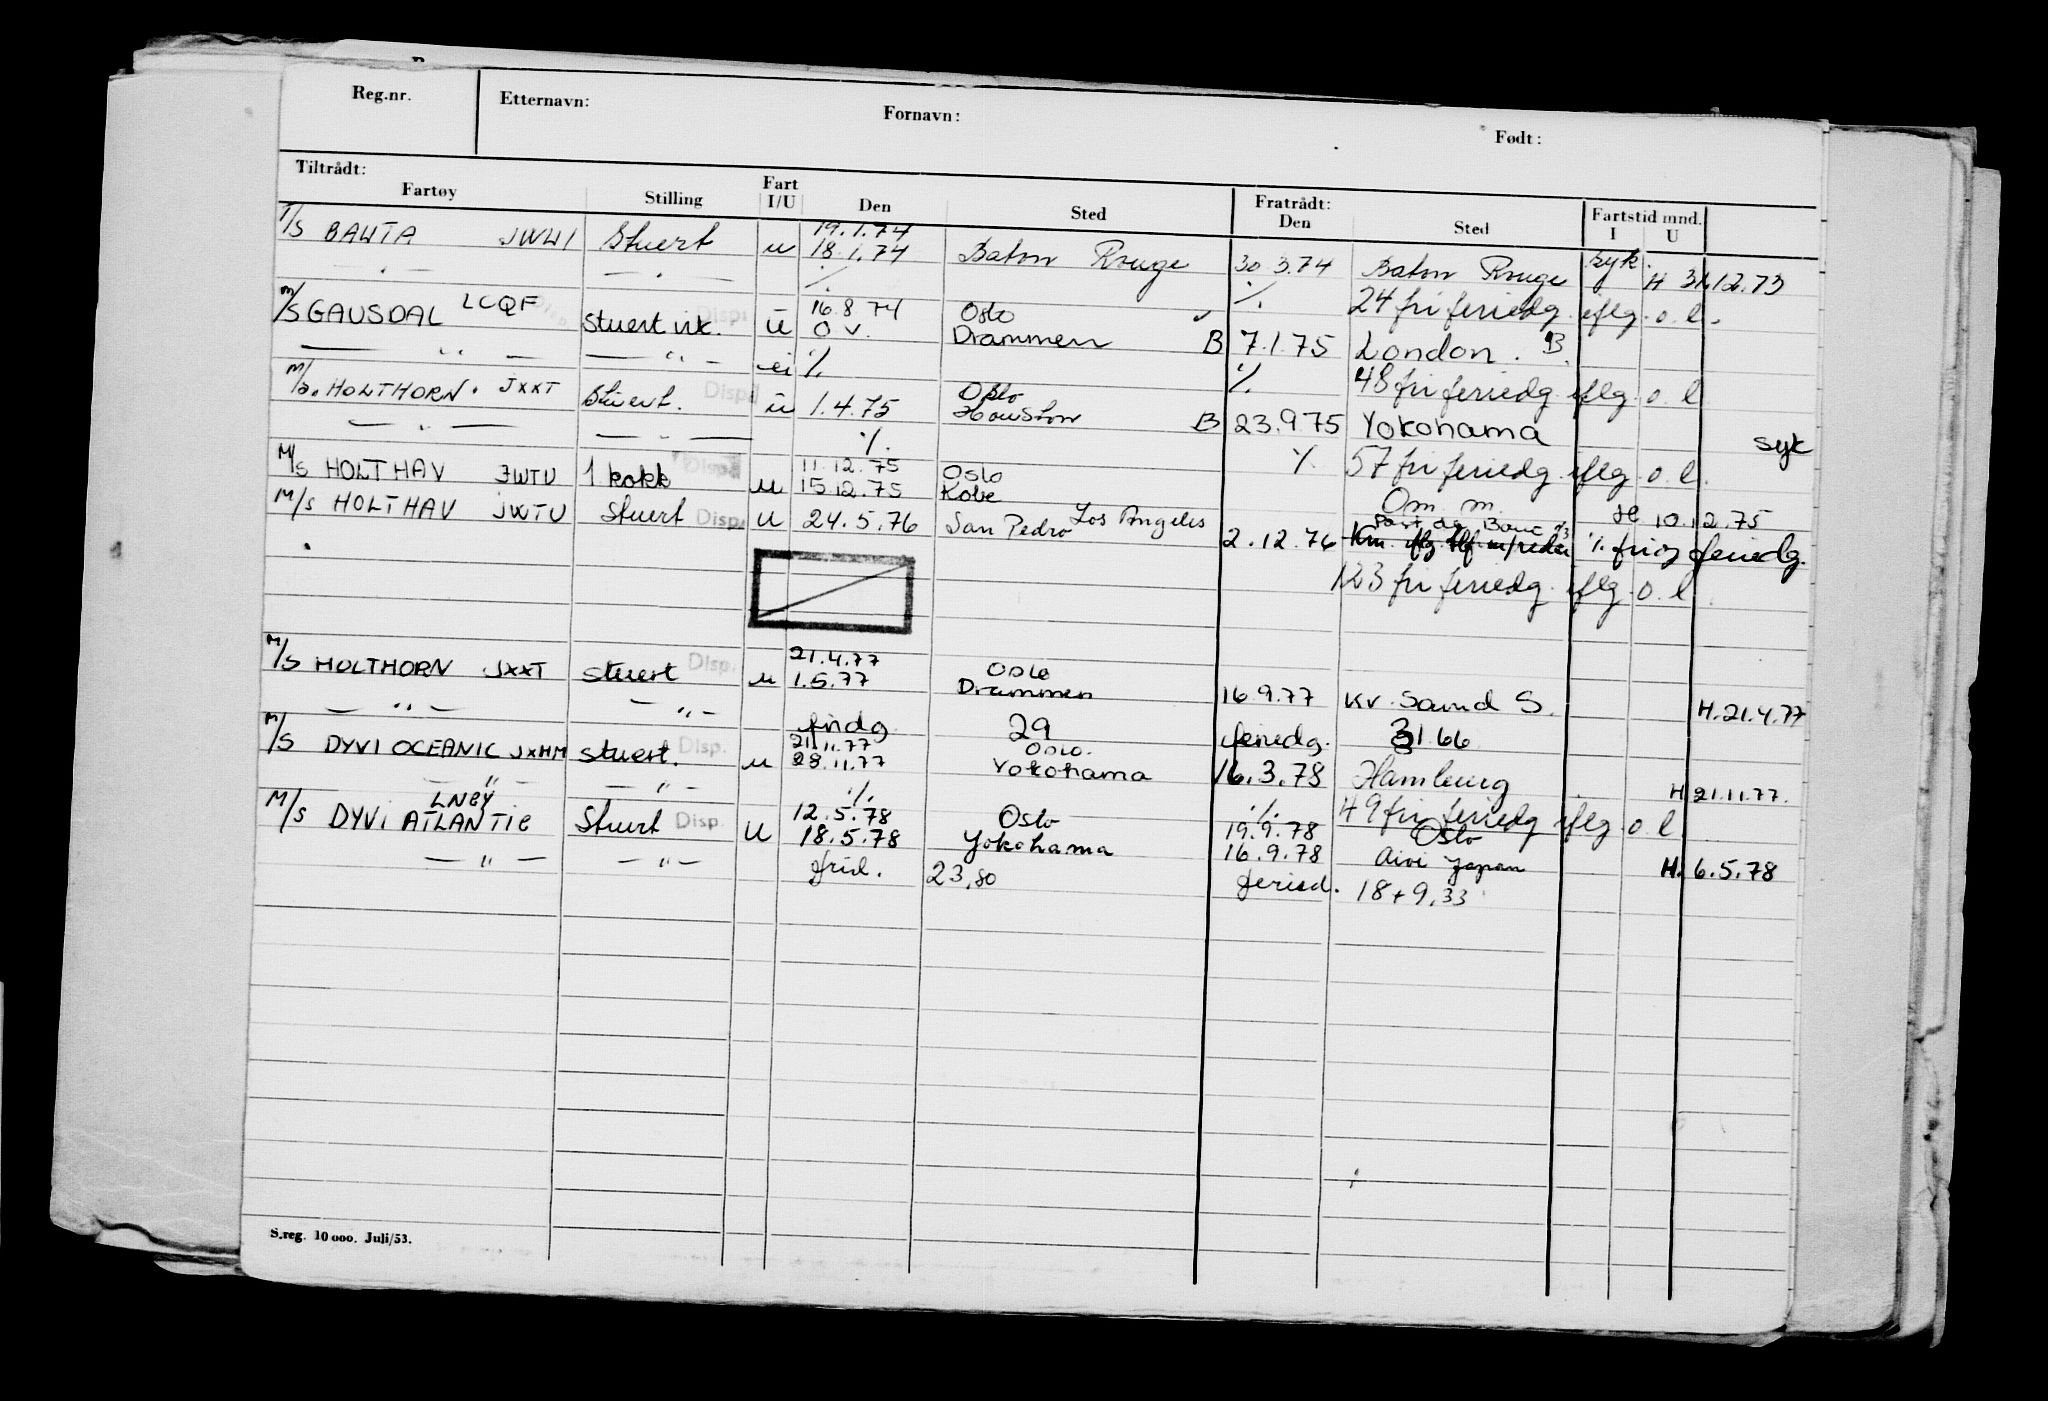 Reg.nr. Etternavn: Fornavn: Født:
Tiltrådt: Fartøy Stilling Fart I/U Den Sted Fratrådt: Den Sted Fartstid mnd. I U
19.1.74
T/S BAWTA JWWI Stuert u 18.1.74 Baton Rouge 30 3.74 Baton Rouge syk. H 31.12.73
— " — — " — % % 24 fri feriedg. iflg. o. l.
16.8 74 Oslo
M/S GAUSDAL LCQF Stuert vk. Disp. u O V. Drammen B 7.1.75 London. B.
— " — — " — ei % % 48 fri feriedg iflg. o. l
Oslo
M/S. HOLTHORN. JXXT Stuert. Disp u 1.4.75 Houston B 23.9.75 Yokohama syk
— " — — " — % % 57 fri feriedg. iflg. o. l.
11.12.75 Oslo
M/S HOLTHAV JWTU 1 kokk Disp u 15 12.75 Kobe Om. m. H 10.12.75
M/S HOLTHAV JWTU Stuert Disp. U 24.5.76 San Pedro Los Angeles 2.12.76 % feriedg.
123 fri feriedg. iflg. o. l.
21.4.77 Oslo
M/S HOLTHORN JXXT Stuert Disp. u 1.5.77 Drammen 16.9.77 Kv. Sound S. H. 21.4.77
— " — — " — fridg 29 feriedg. 31.66
21.11.77 Oslo.
M/S DYVI OCEANIC JXHM Stuert. Disp. u 28.11.77 Yokohama 16.3.78 Hamburg H. 21.11.77.
— " — — " — % % 49 fri feriedg iflg. o. l.
LNBY 12.5.78 Oslo 19.9.78 Oslo
M/S DYVI ATLANTIC Stuert Disp. U 18.5.78 Yokohama 16.9.78 Aioi Japan H. 6.5.78
— " — — " — frid. 23,80 feried. 18 + 9,33
S.reg. 10 000. Juli/53.